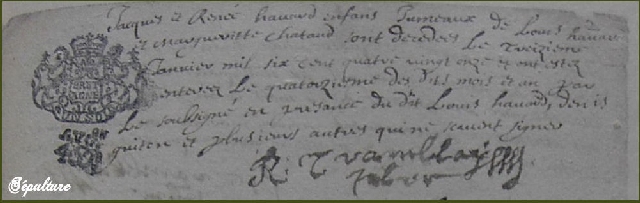 Jacques et René hauard enfans Jumeaux de Louis hauard
et Margueritte Chataud sont decedees Le treizieme
Januier mil six cent quatre vingt onze et ont estez
enterez Le quatorzieme des dits mois et an par
Le soussigné en presance du dit Louis hauard, denis
guiton et plusieurs autres qui ne scauent signer
R. Tramblay
Sépulture